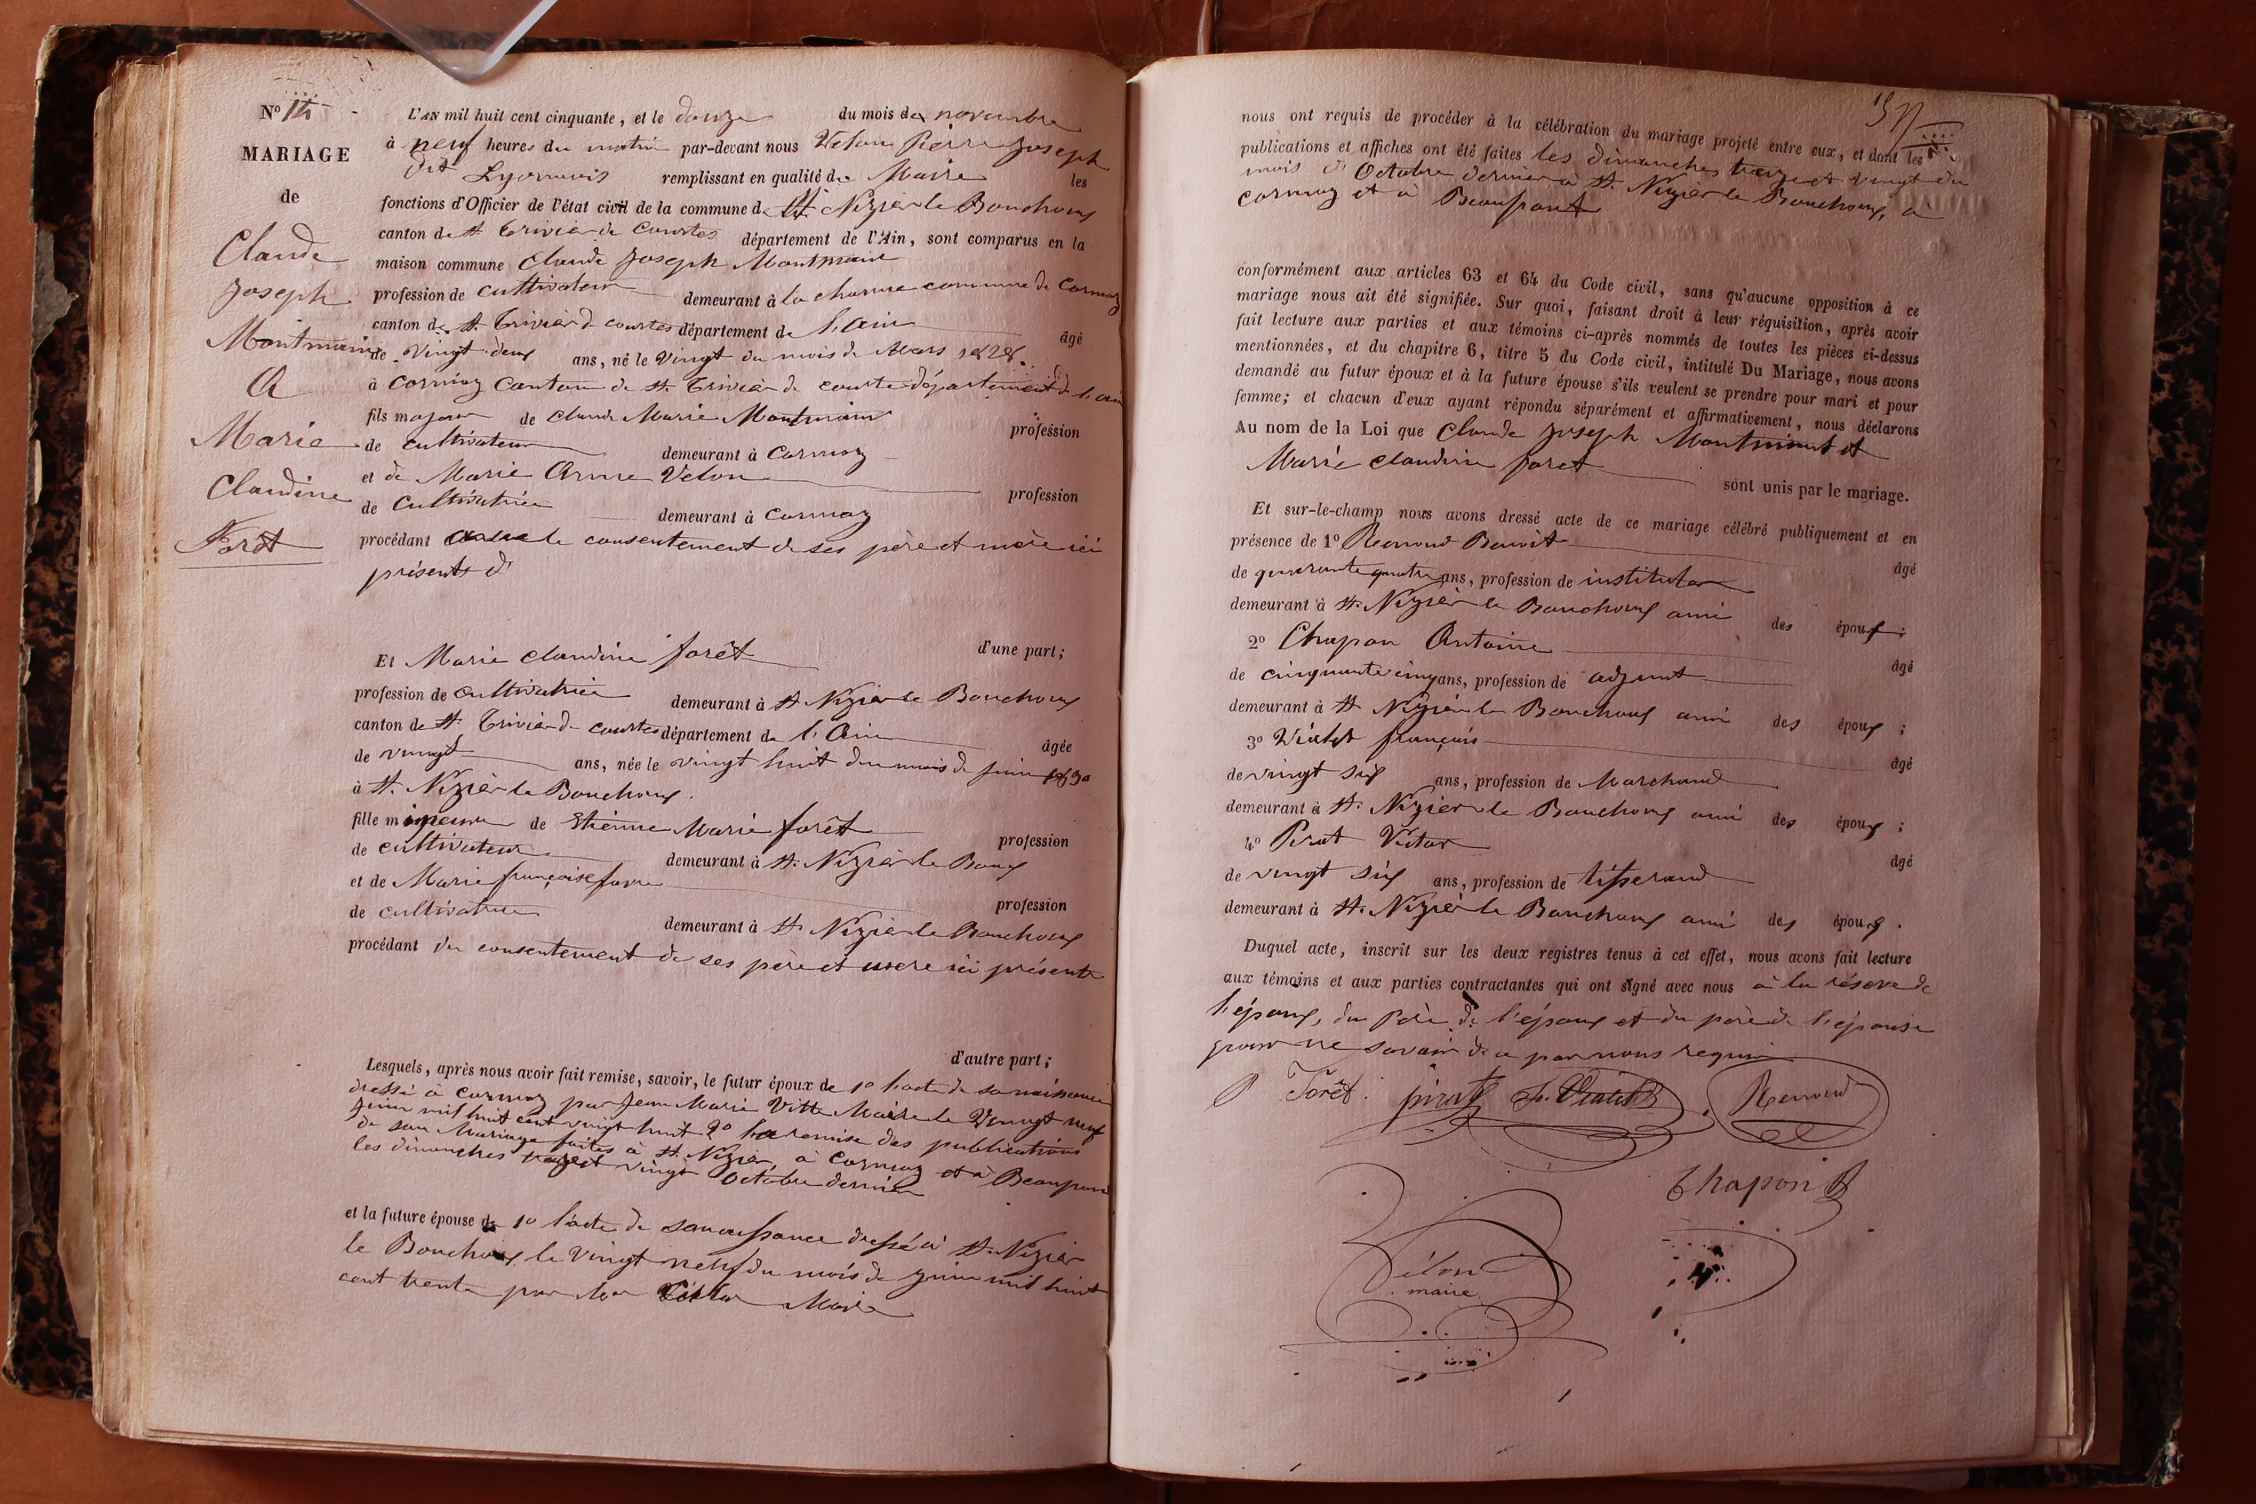 No 14
MARIAGE
de
Claude
Joseph
Montmain
A
Marie
Claudine
Forêt
L'AN mil huit cent cinquante, et le douze du mois de novembre
à neuf heures du matin par-devant nous Velon Pierre Joseph
dit Lyonnais remplissant en qualité de Maire les
fonctions d'Officier de l'état civil de la commune de St. Nizier le Bouchoux
canton de St Trivier de Courtes département de l'Ain, sont comparus en la
maison commune Claude Joseph Montmain
profession de cultivateur demeurant à la charme commune de Cormoz
canton de St. Trivier de courtes département de l'ain âgé
de vingt deux ans, né le vingt du mois de Mars 1828.
à Cormoz Canton de St. Trivier de courte département de l'ain
fils majeur de Claude Marie Montmain profession
de cultivateur demeurant à Cormoz
et de Marie Anne Velon profession
de Cultivatrice demeurant à Cormoz
procédant le consentement de ses père et mère ici
présents d'
d'une part;
Et Marie Claudine forêt
profession de cultivatrice demeurant à St Nizier le Bouchoux
canton de St. Trivier de courtes département de l'Ain âgée
de vingt ans, née le vingt huit du mois de juin 1830
à St. Nizier le Bouchoux.
fille mineure de Etienne Marie forêt profession
de cultivateur demeurant à St. Nizier le Boux
et de Marie françoise favre profession
de cultivatrice demeurant à St Nizier le Bouchoux
procédant du consentement de ses père et mere ici présents
d'autre part;
Lesquels, après nous avoir fait remise, savoir, le futur époux de 1o l'acte de sa naissance
dressé à Cormoz par Jean Marie Vitte Maire le Vingt neuf
juin mil huit cent vingt huit 2o la remise des publications
de son Mariage faites à St. Nizier, à Cormoz et à Beaupont
les dimanches treize et vingt Octobre dernier
et la future épouse de 1o l'acte de sa naissance dressé à St. Nizier
le Bouchoux le vingt neuf du mois de juin mil huit
cent trente par Maire
nous ont requis de procéder à la célébration du mariage projeté entre eux, et dont les
publications et affiches ont été faites les dimanches treize et vingt du
mois d'Octobre dernier à St. Nizier le Bouchoux, à
Cormoz et à Beaupont
conformément aux articles 63 et 64 du Code civil, sans qu'aucune opposition à ce
mariage nous ait été signifiée. Sur quoi, faisant droit à leur réquisition, après avoir
fait lecture aux parties et aux témoins ci-après nommés de toutes les pièces ci-dessus
mentionnées, et du chapitre 6, titre 5 du Code civil, intitulé Du Mariage, nous avons
demandé au futur époux et à la future épouse s'ils veulent se prendre pour mari et pour
femme; et chacun d'eux ayant répondu séparément et affirmativement, nous déclarons
Au nom de la Loi que Claude Joseph et
Marie Claudine foret sont unis par le mariage.
Et sur-le-champ nous avons dressé acte de ce mariage célébré publiquement et en
présence de 1o Renoud Benoit âgé
de quarante quatre ans, profession de instituteur
demeurant à St. Nizier le Bouchoux ami des époux;
2o Chapon Antoine âgé
de cinquante cinq ans, profession de adjoint
demeurant à St Nizier le Bouchoux ami des époux;
3o Vialet françois âgé
de vingt six ans, profession de Marchand
demeurant à St. Nizier le Bouchoux ami des époux;
4o Pirat Victor âgé
de vingt six ans, profession de tisserand
demeurant à St. Nizier le Bouchoux ami des époux.
Duquel acte, inscrit sur les deux registres tenus à cet effet, nous avons fait lecture
aux témoins et aux parties contractantes qui ont signé avec nous à la réserve de
l'époux, du Père de l'époux et du père de l'épouse
pour ne savoir de ce par nous requis
Forêt. Renoud
Chapon
Vélon
maire